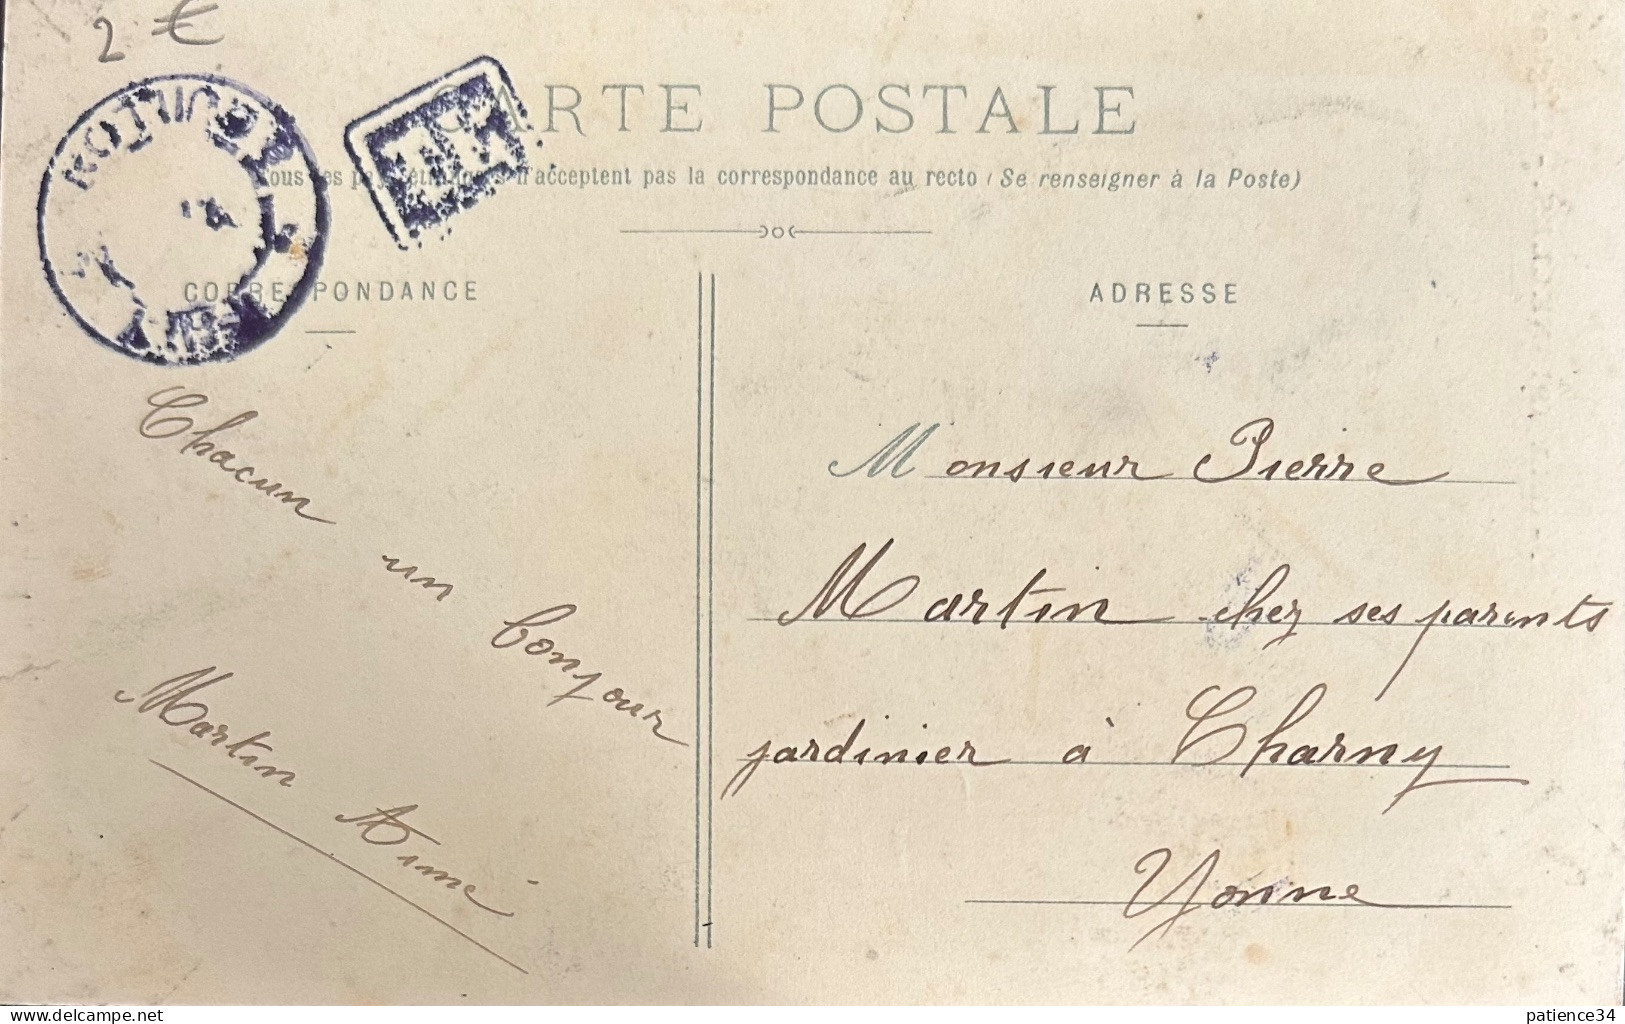 2 €
CARTE POSTALE
Tous les pays étrangers n'acceptent pas la correspondance au recto (Se renseigner à la Poste)
CORRESPONDANCE
Chacun un bonjour
Martin Aimé
ADRESSE
Monsieur Pierre
Martin chez ses parents
jardinier à Charny
Yonne
www.delcampe.net
patience34